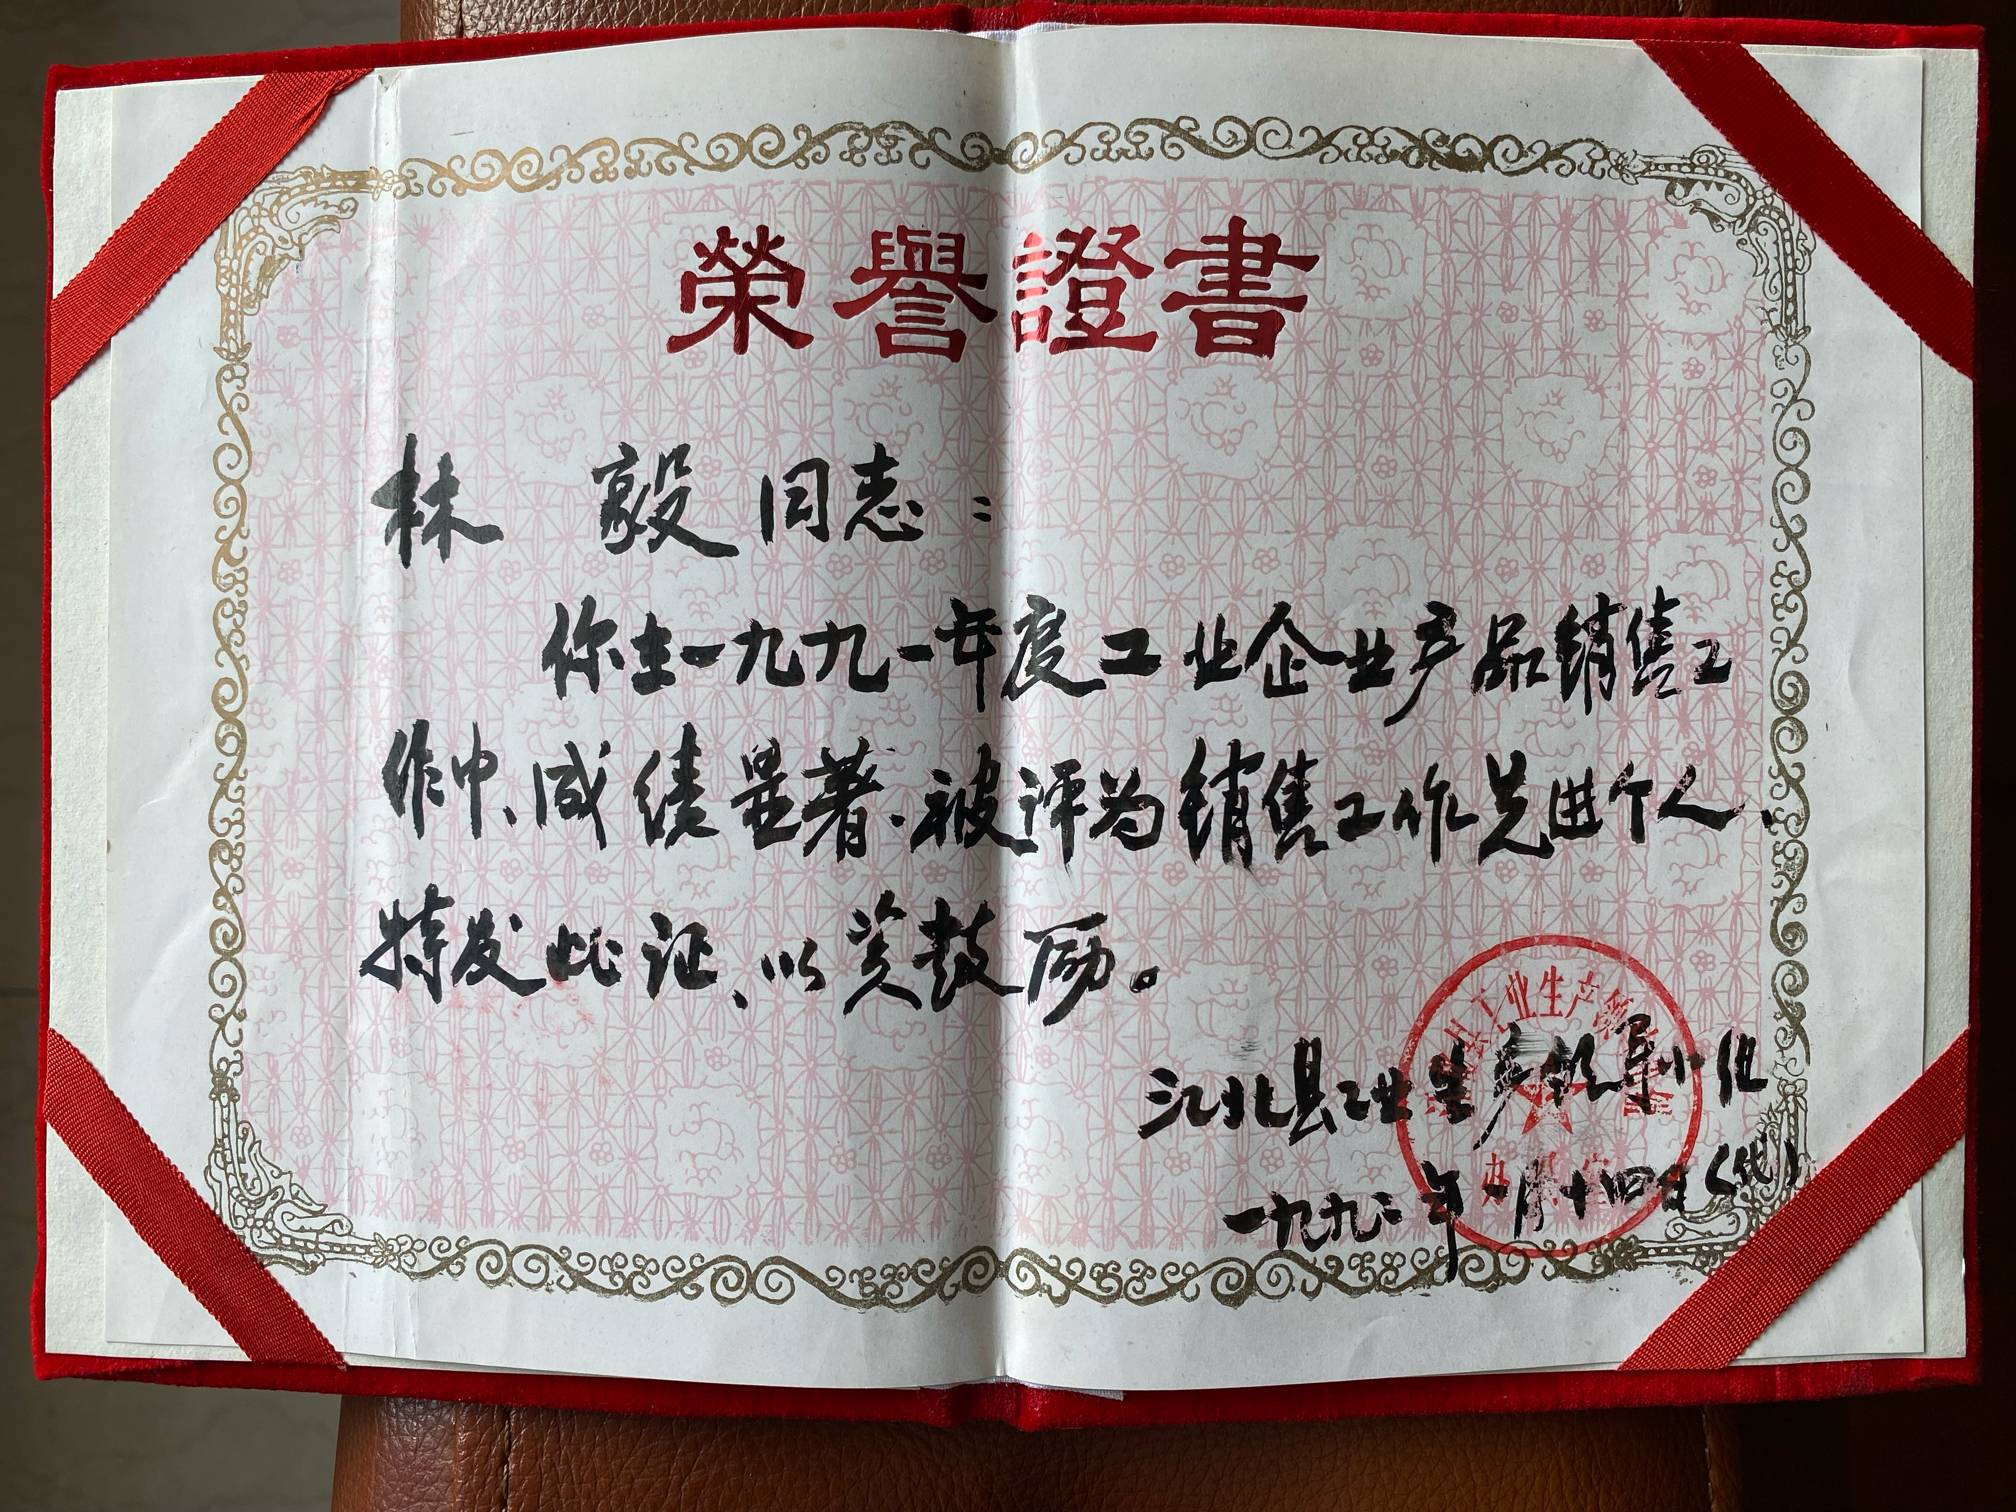 榮譽證書
林 毅同志：
你在一九九一年度工业企业产品销售工
作中、成绩显著、被评为销售工作先进个人、
特发此证、以资鼓励。
江北县工业生产领导小组
一九九二年一月十四日(代)
县工业生产领
办